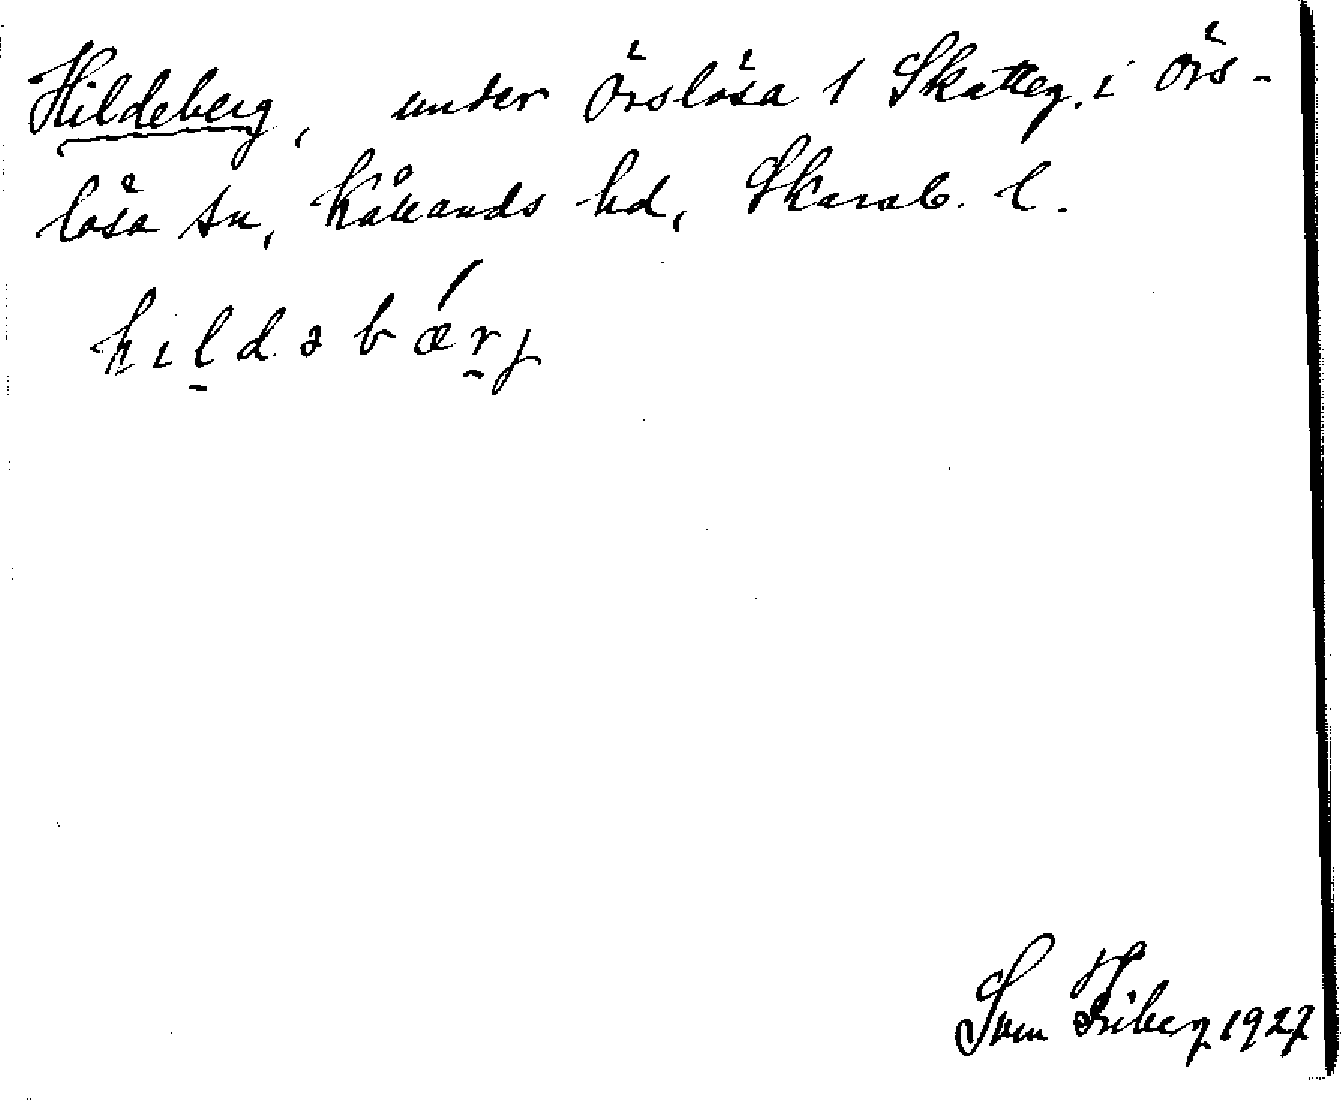 Hildeberg, under Örslösa 1 Skatteg. i Örs-
lösa sn, Kållands hd, Skarab. l.
hildəbǽrj
Sven Friberg 1927